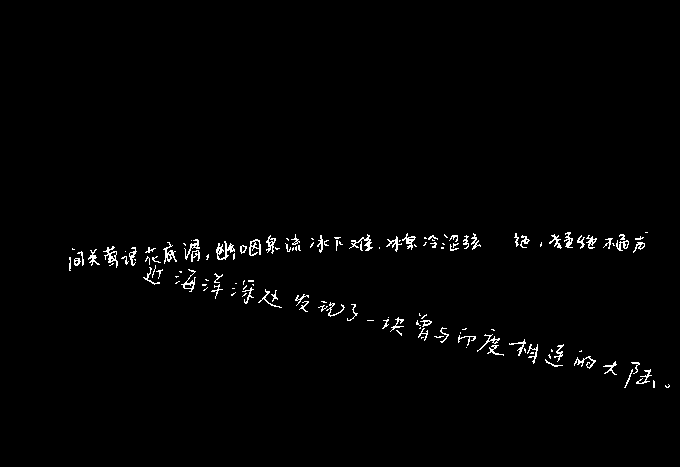 间关莺语花底滑，幽咽泉流冰下难.冰泉冷涩弦 绝，凝绝不通声
近海洋深处发现了一块曾与印度相连的大陆。